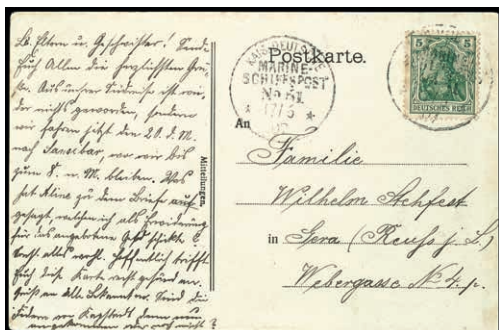 Lb. Eltern u. Geschwister! Sende
Euch Allen die herzlichsten Grü-
ße. Aus unserer Südreise ist wie-
der nichts geworden, sondern
wir fahren jetzt den 20. d. M.
nach Sansibar, wo wir bis
zum 8. n. M. bleiben. Was
hat Aline zu dem Briefe
gesagt, welchen ich als Erwiderung
für das angebotene Geld schickte
alles wohl. Hoffentlich trifft
Euch diese Karte recht gesund an.
Gruß an alle Bekannten. Sind die
Federn von Kapstadt denn nun
angekommen oder noch nicht?
Mitteilungen.
Postkarte.
KAIS. DEUTSCHE
MARINE-
SCHIFFSPOST
No 51
17/5
5 5
DEUTSCHES REICH
An
Familie
Wilhelm Stehfest
in Gera (Reuss j. L.)
Webergasse No 4 p.